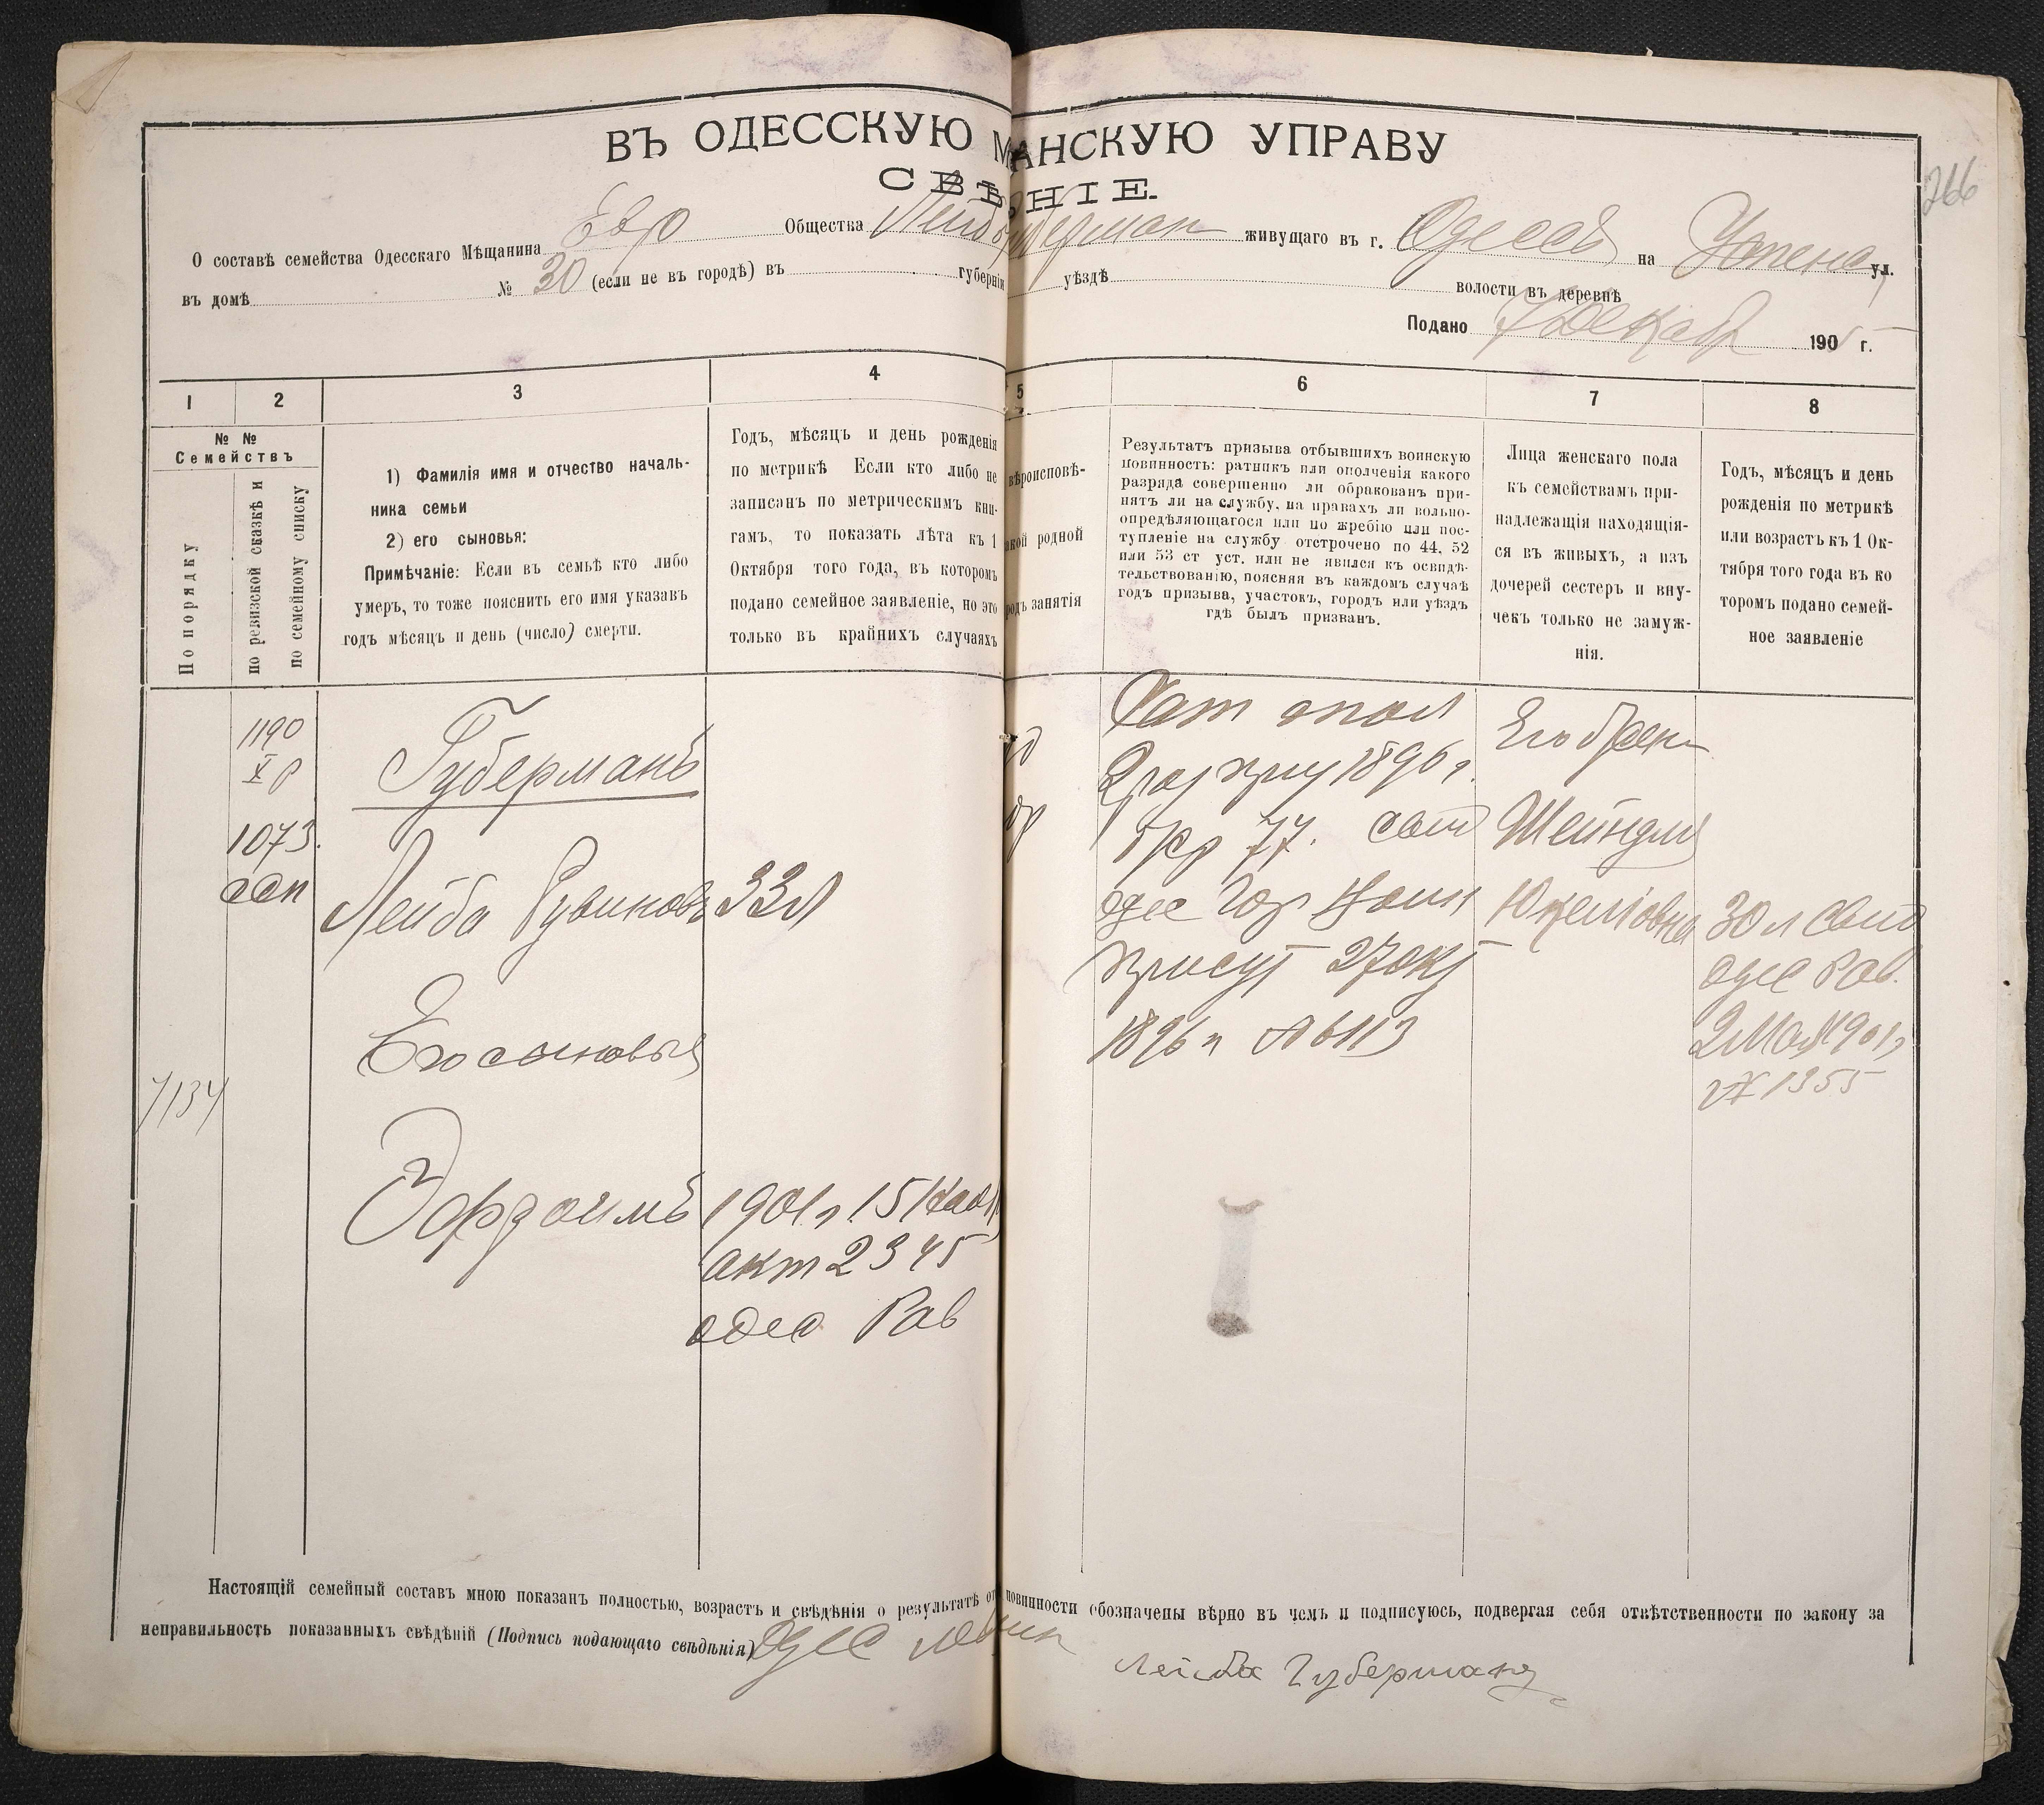 266
ВЪ ОДЕССКУЮ М АНСКУЮ УПРАВУ
СВѢ НІЕ.
О составѣ семейства Одесскаго Мѣщанина Евр Общества Лейб Губерман живущаго въ г. Одессѣ на Успенс ул.
въ домѣ № 30 (если не въ городѣ) въ губерніи уѣздѣ волости въ деревнѣ
Подано 7 Декаб 1905 г.
1 2 3 4 5 6 7 8
№ №
Семействъ
По порядку
по ревизской сказкѣ и
по семейному списку
1) Фамилія имя и отчество началь-
ника семьи
2) его сыновья:
Примѣчаніе: Если въ семьѣ кто либо
умеръ, то тоже пояснить его имя указавъ
годъ мѣсяцъ и день (число) смерти.
Годъ, мѣсяцъ и день рожденія
по метрикѣ Если кто либо не
записанъ по метрическимъ кни-
гамъ, то показать лѣта къ 1
Октября того года, въ которомъ
подано семейное заявленіе, но это
только въ крайнихъ случаяхъ
вѣроисповѣ-
кой родной
родъ занятія
Результатъ призыва отбывшихъ воинскую
повинность: ратникъ или ополченія какого
разряда совершенно ли обракованъ при-
нятъ ли на службу, на правахъ ли вольно-
опредѣляющагося или по жребію или пос-
тупленіе на службу отстрочено по 44, 52
или 53 ст уст. или не явился къ освидѣ-
тельствованію, поясняя въ каждомъ случаѣ
годъ призыва, участокъ, городъ или уѣздъ
гдѣ былъ призванъ.
Лица женскаго пола
къ семействамъ при-
надлежащія находящія-
ся въ живыхъ, а изъ
дочерей сестеръ и вну-
чекъ только не замуж-
нія.
Годъ, мѣсяцъ и день
рожденія по метрикѣ
или возрастъ къ 1 Ок-
тября того года въ ко
торомъ подано семей-
ное заявленіе
1190
X р
1073
Губерманъ
Лейба Рувиновъ 33 л
Его сыновья
7134
Эфроимъ
1901 г. 15
акт 2345
одес Рав
Рат опол
2 раз приз 1896 г.
жр 77. свид
одес Гор Воин
присут 27 окт
1896 г № 6113
Его жена
Шейндля
30 л свид
одес Рав.
2 Мая 1901 г
№ 1355
Настоящій семейный составъ мною показанъ полностью, возрастъ и свѣдѣнія о результатѣ от повинности обозначены вѣрно въ чемъ и подписуюсь, подвергая себя отвѣтственности по закону за
неправильность показанныхъ свѣдѣній (Подпись подающаго свѣдѣнія) Одес мѣщан
Лейба Губерманъ